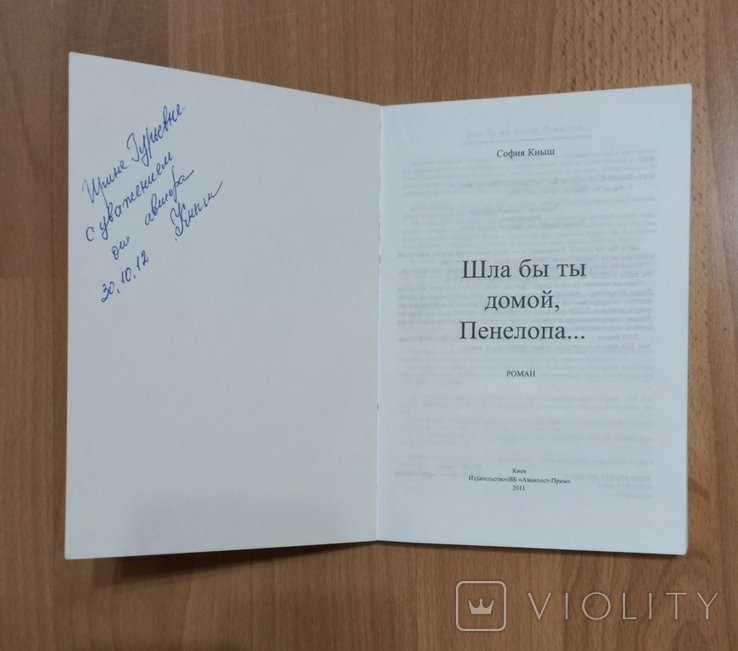 Ирине Гурьевне
с уважением
от автора
Кныш
30.10.12
София Кныш
Шла бы ты
домой,
Пенелопа...
РОМАН
Киев
Издательство«ВБ «Аванпост-Прим»
2011
VIOLITY